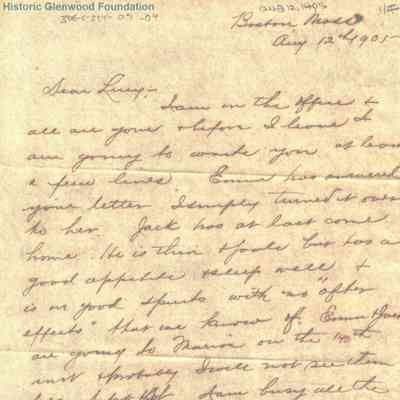 Historic Glenwood Foundation
Boston Mass
Aug 12th 1905-
Dear Lucy,-
I am in the office &
all are gone & before I leave I
am going to write you at leas
a few lines. Emma has answered
your letter I simply turned it over
to her. Jack has at last come
home. He is thin & pale but has a
good appetite & sleep well &
is in good spirits with no "after
effects" that we know of. Emma & Jack
are going to on the 14th
inst & probably I will not see them
I am busy all the